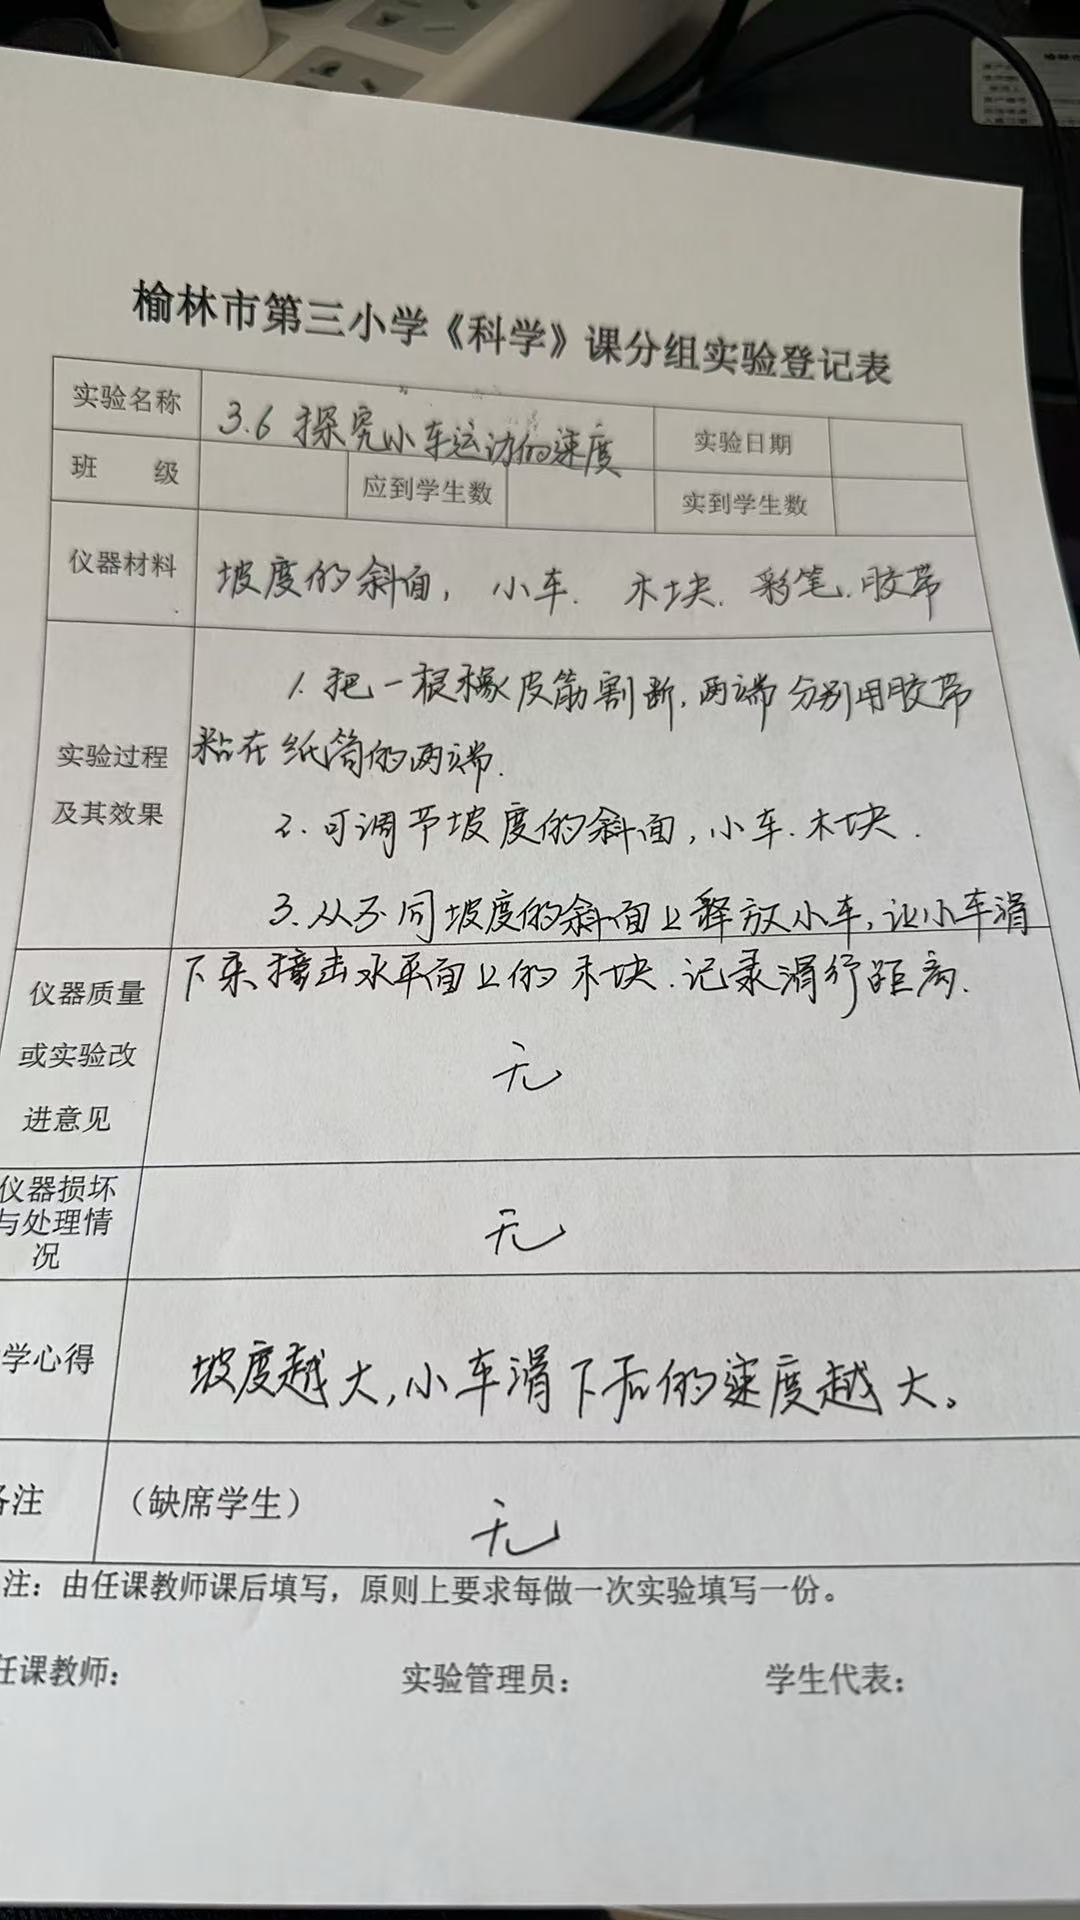 榆林市第三小学《科学》课分组实验登记表
实验名称 3.6 探究小车运动的速度 实验日期
班 级 应到学生数 实到学生数
仪器材料 坡度的斜面，小车、木块、彩笔、胶带
实验过程
及其效果
1.把一根橡皮筋割断，两端分别用胶带
粘在纸筒的两端.
2.可调节坡度的斜面，小车、木块.
3.从不同坡度的斜面上释放小车，让小车滑
下来撞击水平面上的木块.记录滑行距离.
仪器质量
或实验改
进意见
无
仪器损坏
与处理情
况
无
学心得 坡度越大，小车滑下后的速度越大。
备注 （缺席学生） 无
注：由任课教师课后填写，原则上要求每做一次实验填写一份。
任课教师： 实验管理员： 学生代表：